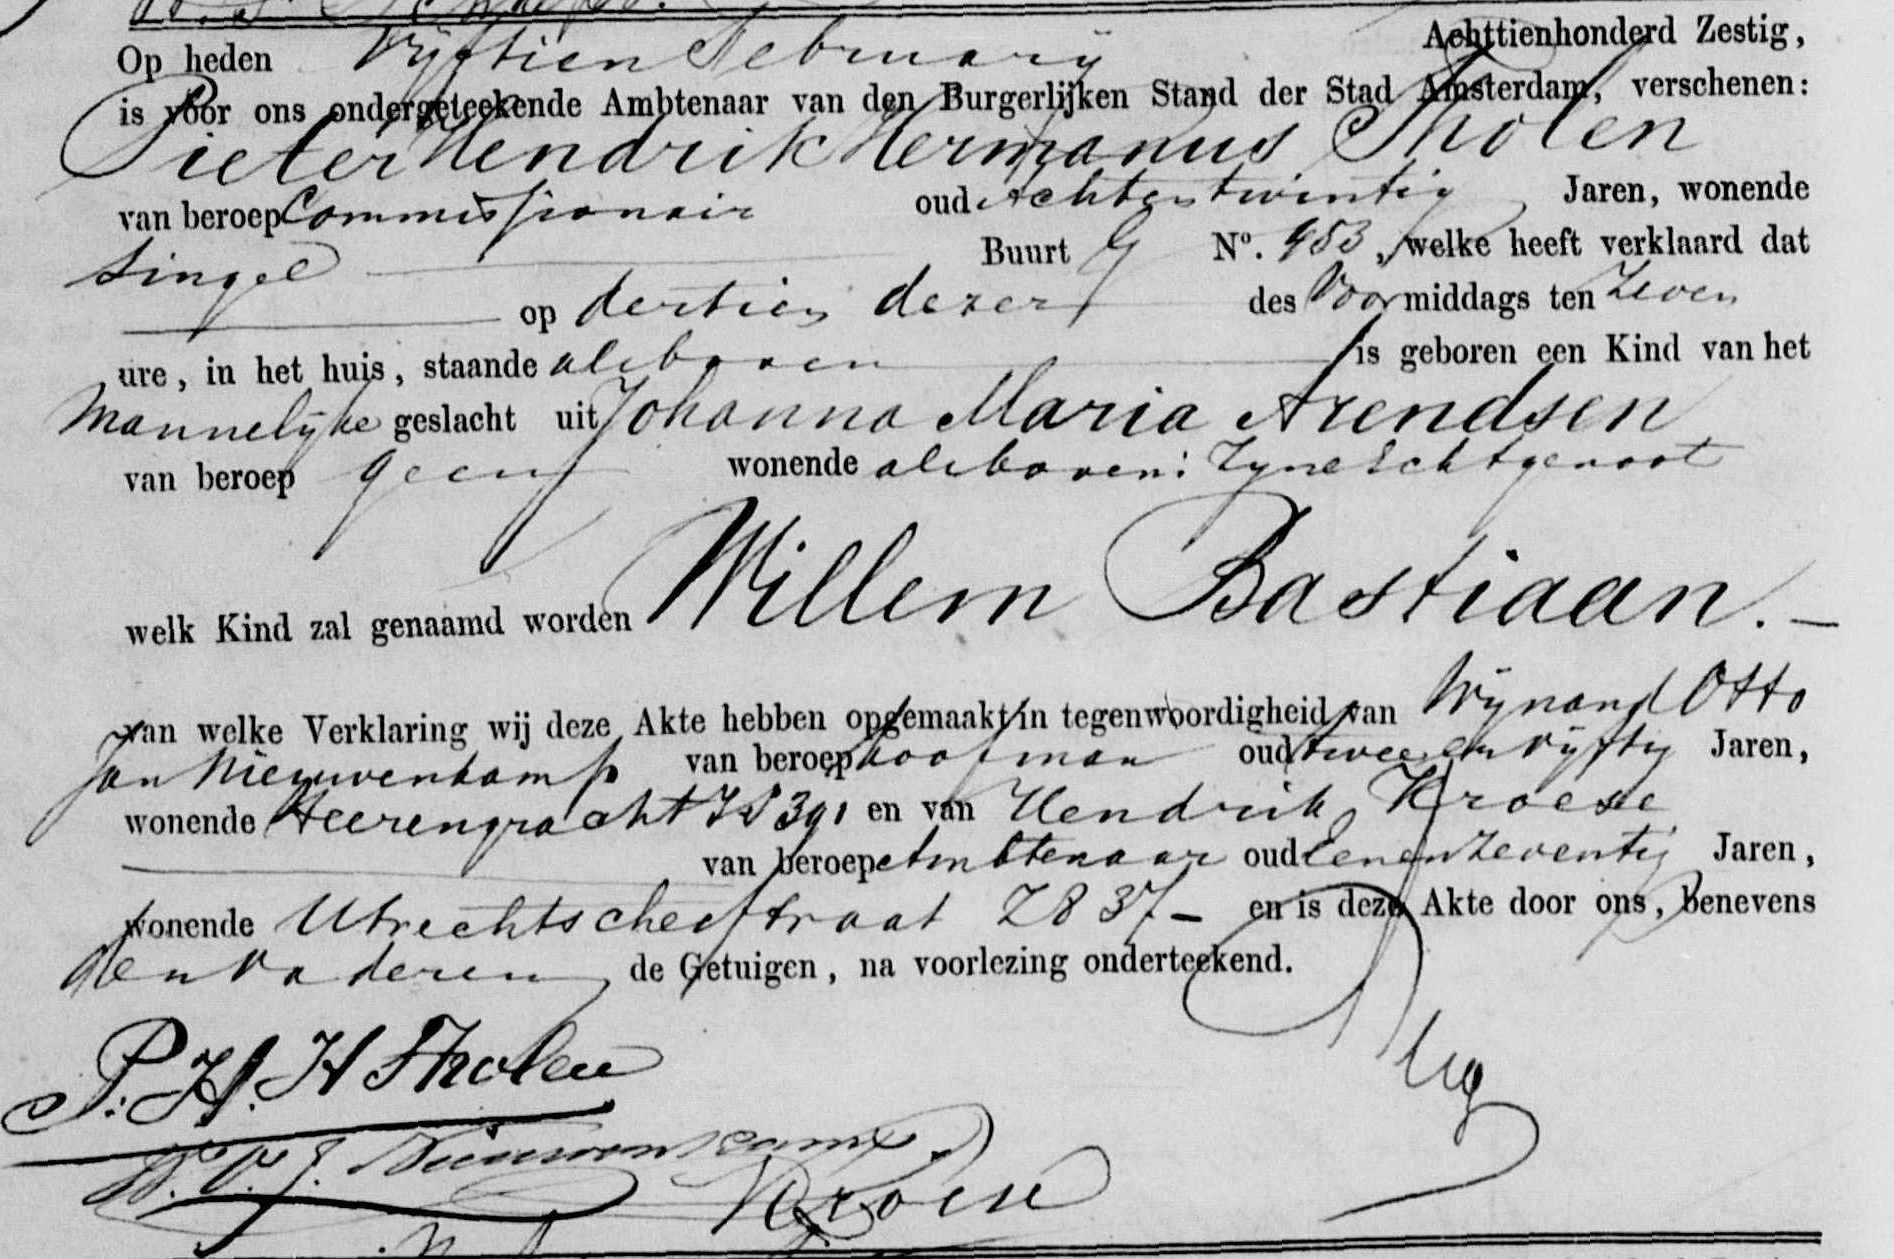 Op heden Vyftien February Achttienhonderd Zestig,
is voor ons ondergeteekende Ambtenaar van den Burgerlijken Stand der Stad Amsterdam, verschenen:
Pieter Hendrik Hermanus Tholen
van beroep Commissionair oud Achtentwintig Jaren, wonende
Singel Buurt G N°. 453, welke heeft verklaard dat
op dertien dezer des Voormiddags ten Zeven
ure, in het huis, staande alsboven is geboren een Kind van het
Mannelyke geslacht uit Johanna Maria Arendsen
van beroep geen wonende alsboven: Zyne Echtgenoot
welk Kind zal genaamd worden Willem Bastiaan. —
van welke Verklaring wij deze Akte hebben opgemaakt in tegenwoordigheid van Wijnand Otto
Jan Nieuwenkamp van beroep Koofman oud tweeenvyftig Jaren,
wonende Heerengracht 391 en van Hendrik Kroese
van beroep Ambtenaar oud Eenenzeventig Jaren,
wonende Utrechtschestraat 837 — en is deze Akte door ons, benevens
den Vader en de Getuigen, na voorlezing onderteekend.
P. H. H Tholen
W. O. J. Nieuwenkamp
Kroese